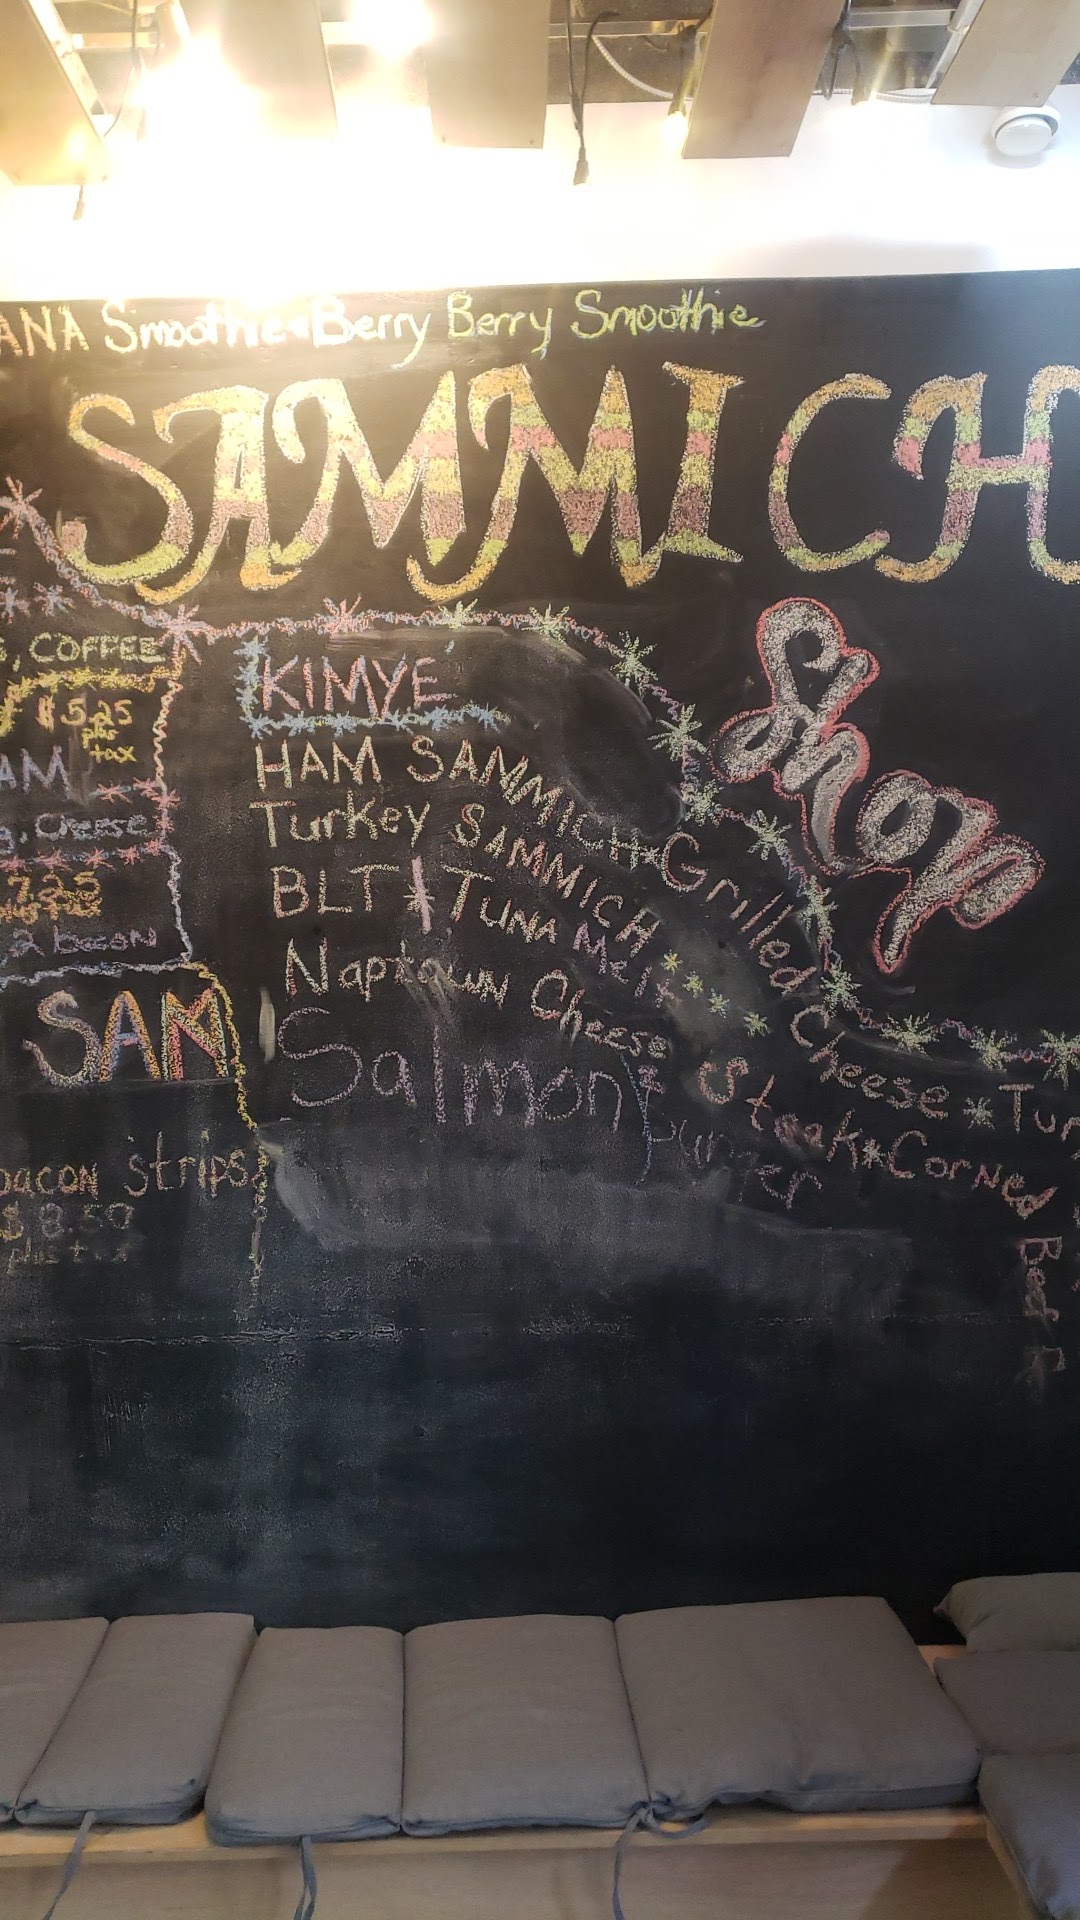 ANA Smoothie Berry Berry Smoothie
SAMMICH
Shop
, COFFEE
$5.25
plus
tax
AM
g, Cheese
7.25
plus tax
2 bacon
SAM
bacon strips
$8.50
plus tax
KIMYÉ
HAM SAMMICH Grilled Cheese Tur
Turkey SAMMICH
BLT TUNA Melt
Naptown Cheese Steak Corned Beef
Salmon